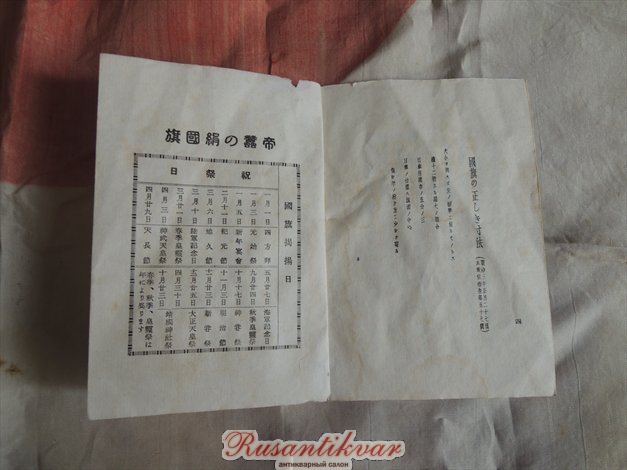 國旗の正しき寸法
日章ノ位置ハ旗面ノ中心
四
帝蠶の絹國旗
祝祭日
國旗掲揚日
一月一日 四方拜
一月三日 元始祭
一月五日 新年宴會
二月十一日 紀元節
三月六日 地久節
三月十日 陸軍記念日
三月廿一日 春季皇靈祭
四月三日 神武天皇祭
四月廿九日 天長節
五月廿七日 海軍記念日
九月廿四日 秋季皇靈祭
十月十七日 神嘗祭
十一月三日 明治節
十一月廿三日 新嘗祭
十二月廿五日 大正天皇祭
四月三十日
十月廿三日 靖國神社祭
春季、秋季、皇靈祭は
年により異ります
Rusantikvar
антикварный салон